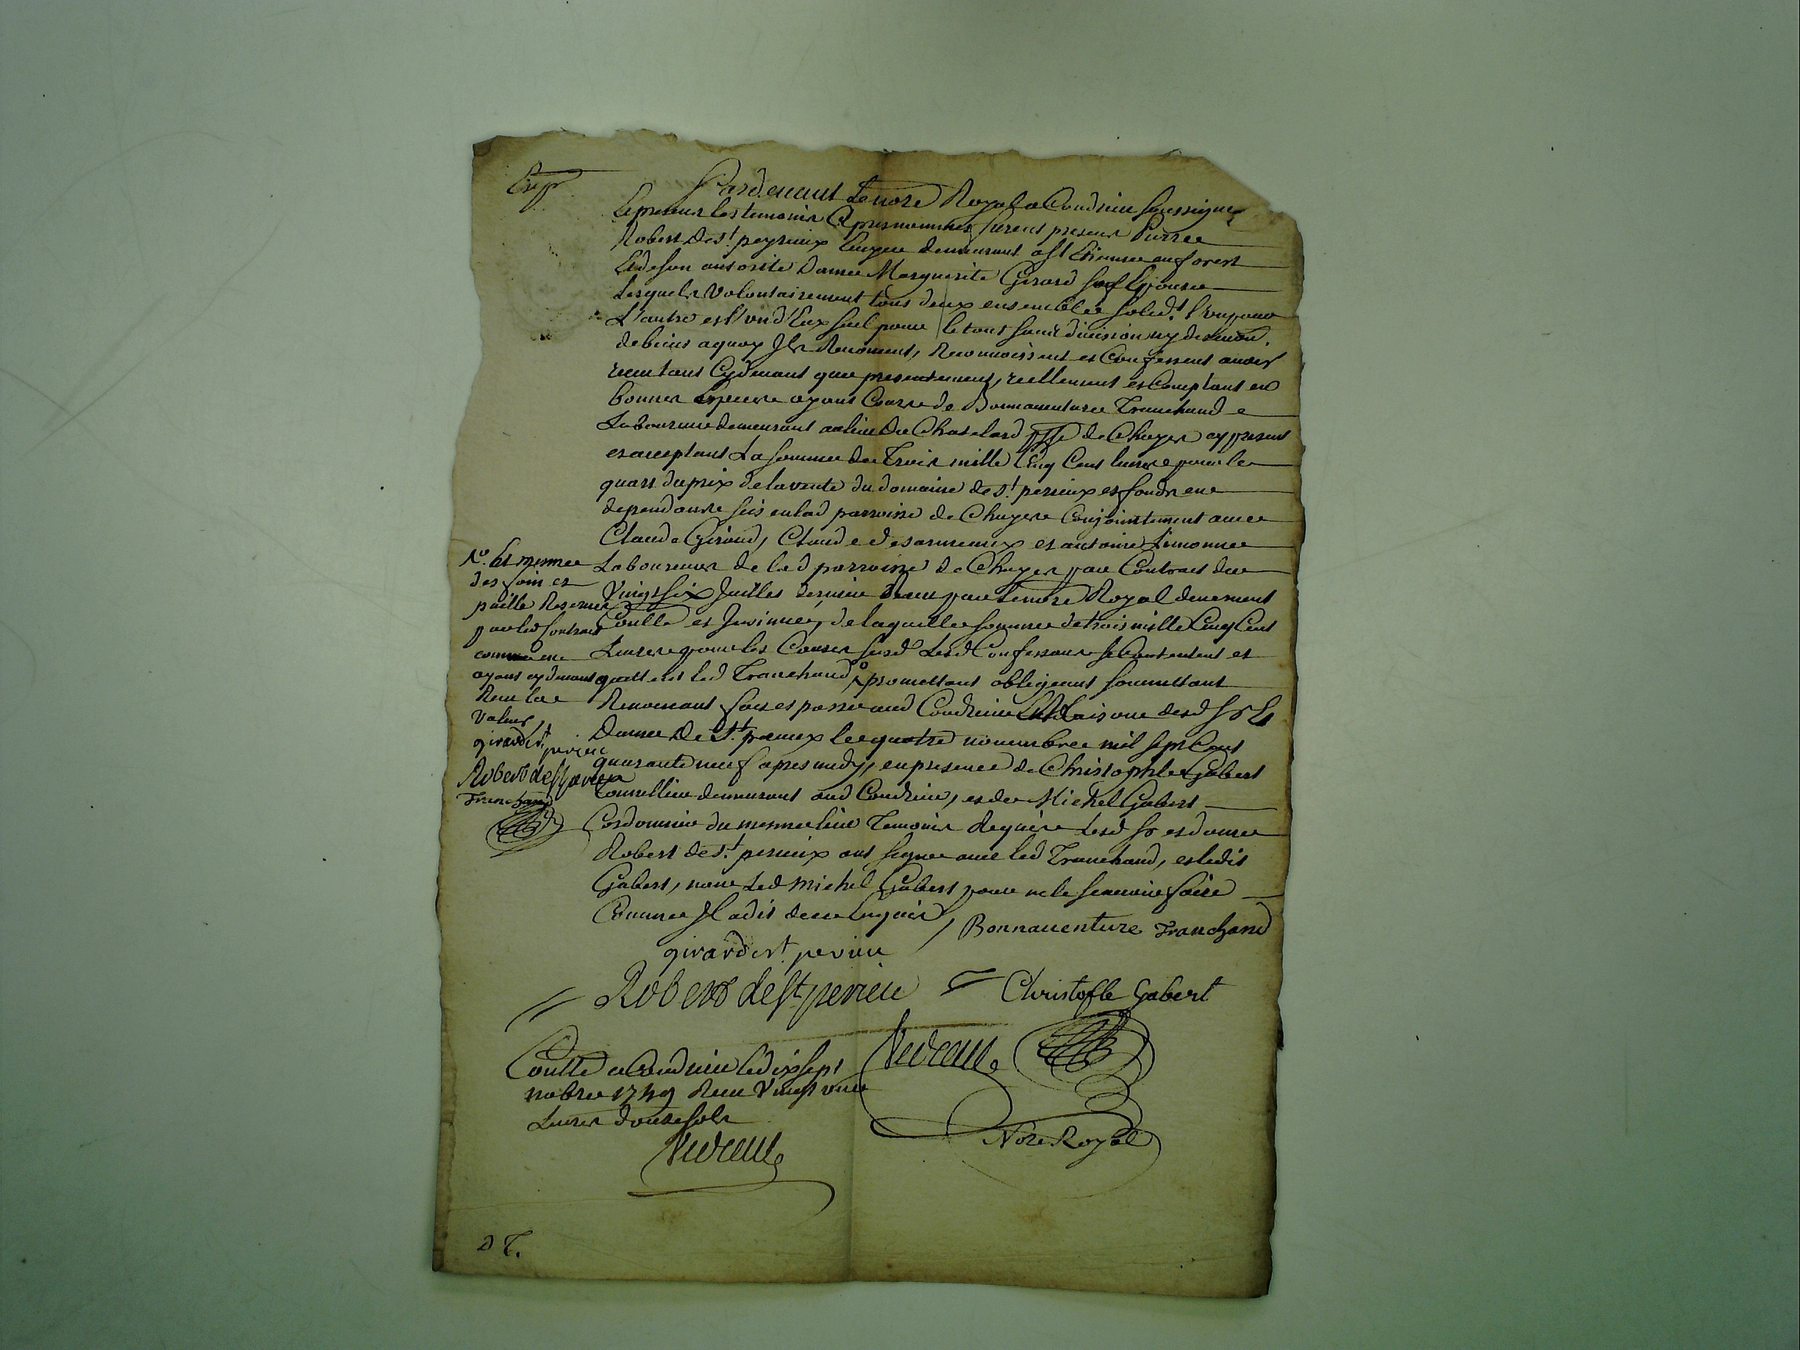 Exp
Pardevant Le nore Royal a Condrieu soussigné
Et presens les temoins Cy apres nommes furent presens Pierre
Robert de St peyrieux Ecuyer demeurant a St Etienne en forest
Et de son autorité Dame Marguerite Girard son Epouse
Lesquels volontairement tous deux ensemble solidt L'un pour
L'autre et l'un d'Eux seul pour le tout sans division ny
de biens a quoy Ils Renoncent, Reconnoissent et Confessent avoir
receu tant Cydevant que presentement, reellement et Comptant en
bonnes Especes ayant Cours de Bonnaventure Tranchand
Laboureur demeurant au lieu du Chatelard psse de Chuyer cy present
et acceptant La somme de Trois mille Cinq Cent livres pour le
quart du prix de la vente du domaine de St perieux et fonds en
dependants sis en lad parroisse de Chuyer Conjointement avec
Claude Giraud, Claude desarmeaux et antoine Limonne
Laboureurs de lad parroisse de Chuyer par Contrat du
Vingt six Juillet dernier Receu par Le nore Royal deuement
Conllé et Insinué, de laquelle somme de trois mille Cinq Cent
Livres pour les Causes susd Lesd Confessants se Contentent et
quittent led Tranchand promettant obligeant soumettant
Renonceant fait et passé aud Condrieu maison desd Sr Et
Dame De St perieux le quatre novembre mil sept Cent
quarante neuf apres midy, en presence de Christophle Gabert
Tonnellier demeurant aud Condrieu, et de Michel Gabert
Cordonnier du mesme lieu Temoins Requis Lesd Sr et dame
Robert de St perieux ont signé avec led Tranchand, et ledit
Gabert, non Led Michel Gabert pour ne le scavoir faire
Comme Il a dit de ce Enquis
Bonnauenture Tranchand
girard st perieu
Robert de st perieu
Christofle Gabert
Nore Royal
et mesme
des foin et
paille Reservés
par led Contrat
comme en
ayant cydevant
Receu la
valeur
girard st perieu
Robert de st perieu
Tranchand
Conllé a Condrieu le dix sept
nobre 1749 Receu Vingt une
Livres douze sols
D T.